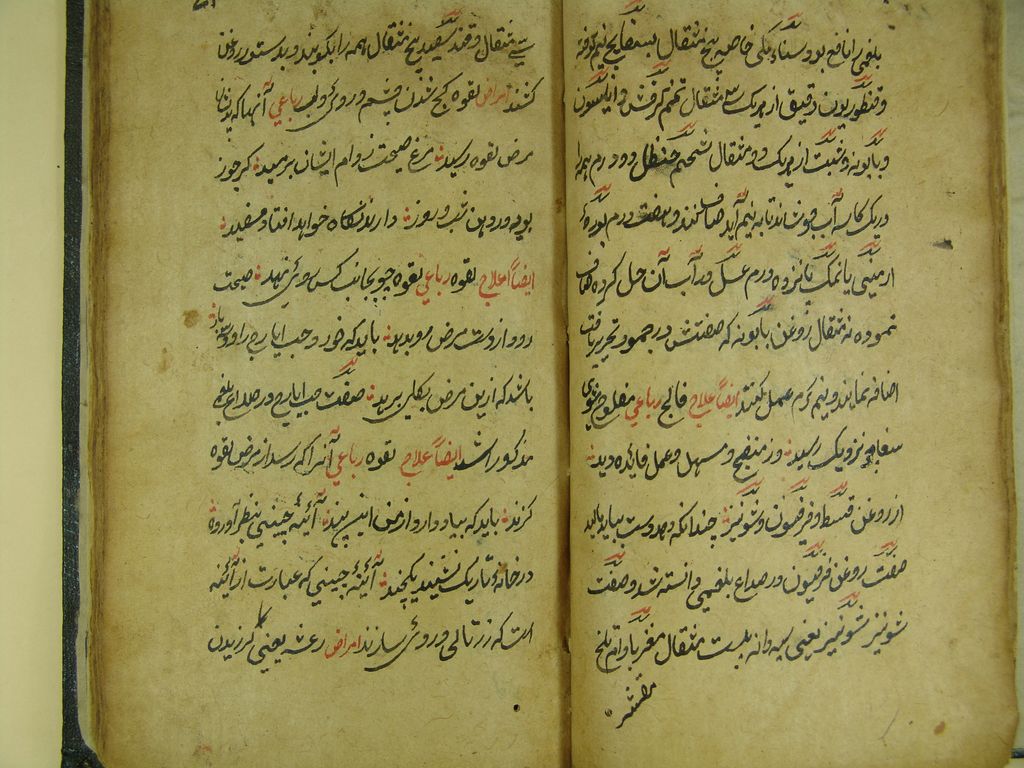 بلغمی را نافع بود و سناء مکی خاصه پنج مثقال بسفایج نیم کوفته
و قنطوریون دقیق از هر یک سه مثقال تخم کرفش و انیسون
و بابونه و شبت از هر یک دو مثقال شحم حنظل دو درم همه را
در یک کاسه آب جوشاند تا به نیم آید صاف کنند و درم بوره
ارمنی یا نمک پانزده درم عسل در آب آن حل کرده صاف
نموده نه مثقال روغن بابونه که صفتش در جمود تحریر یافت
اضافه نمایند و نیم گرم عمل کنند ایضاً علاج فالج رباعی مفلوج
بنزدیک رسید در منضج و مسهل و عمل فایده دید
از روغن قسط و فرفیون و شونیز چندانکه بهم دست بباید مالید
صفت روغن فرفیون در صداع بلغمی دانسته شد و صفت
شونیز شونیز یعنی سیه دانه بیست مثقال مغز بادام تلخ
مقشر
سی مثقال و قند سفید پنج مثقال همه را بکوبند و بدستور روغن
کشند امراض لقوه کج شدن چشم و روی و لب رباعی آنها که بایشان
مرض لقوه رسید مرغ صحت ز دام ایشان برمید گر جوز
بویه در دهن شب و روز دارند نگاه خواهد افتاد مفید
ایضاً علاج لقوه رباعی لقوه چو بجانب کس روی نهد صحت
رود از دست مرض بدهد باید که خورد حب ایارج و از
باشد که ازین مرض بکلی برهد صفت حب ایارج در صداع بلغمی
مذکور شد ایضاً علاج لقوه رباعی آنرا که رسد از مرض لقوه
گزند باید که بیاد دارد از من این پند آئینه چینی بنظر آورده
در خانه تاریک نشیند یکچند آئینه چینی که عبارت از آئینه
است که از روی سازند امراض رعشه یعنی لرزیدن